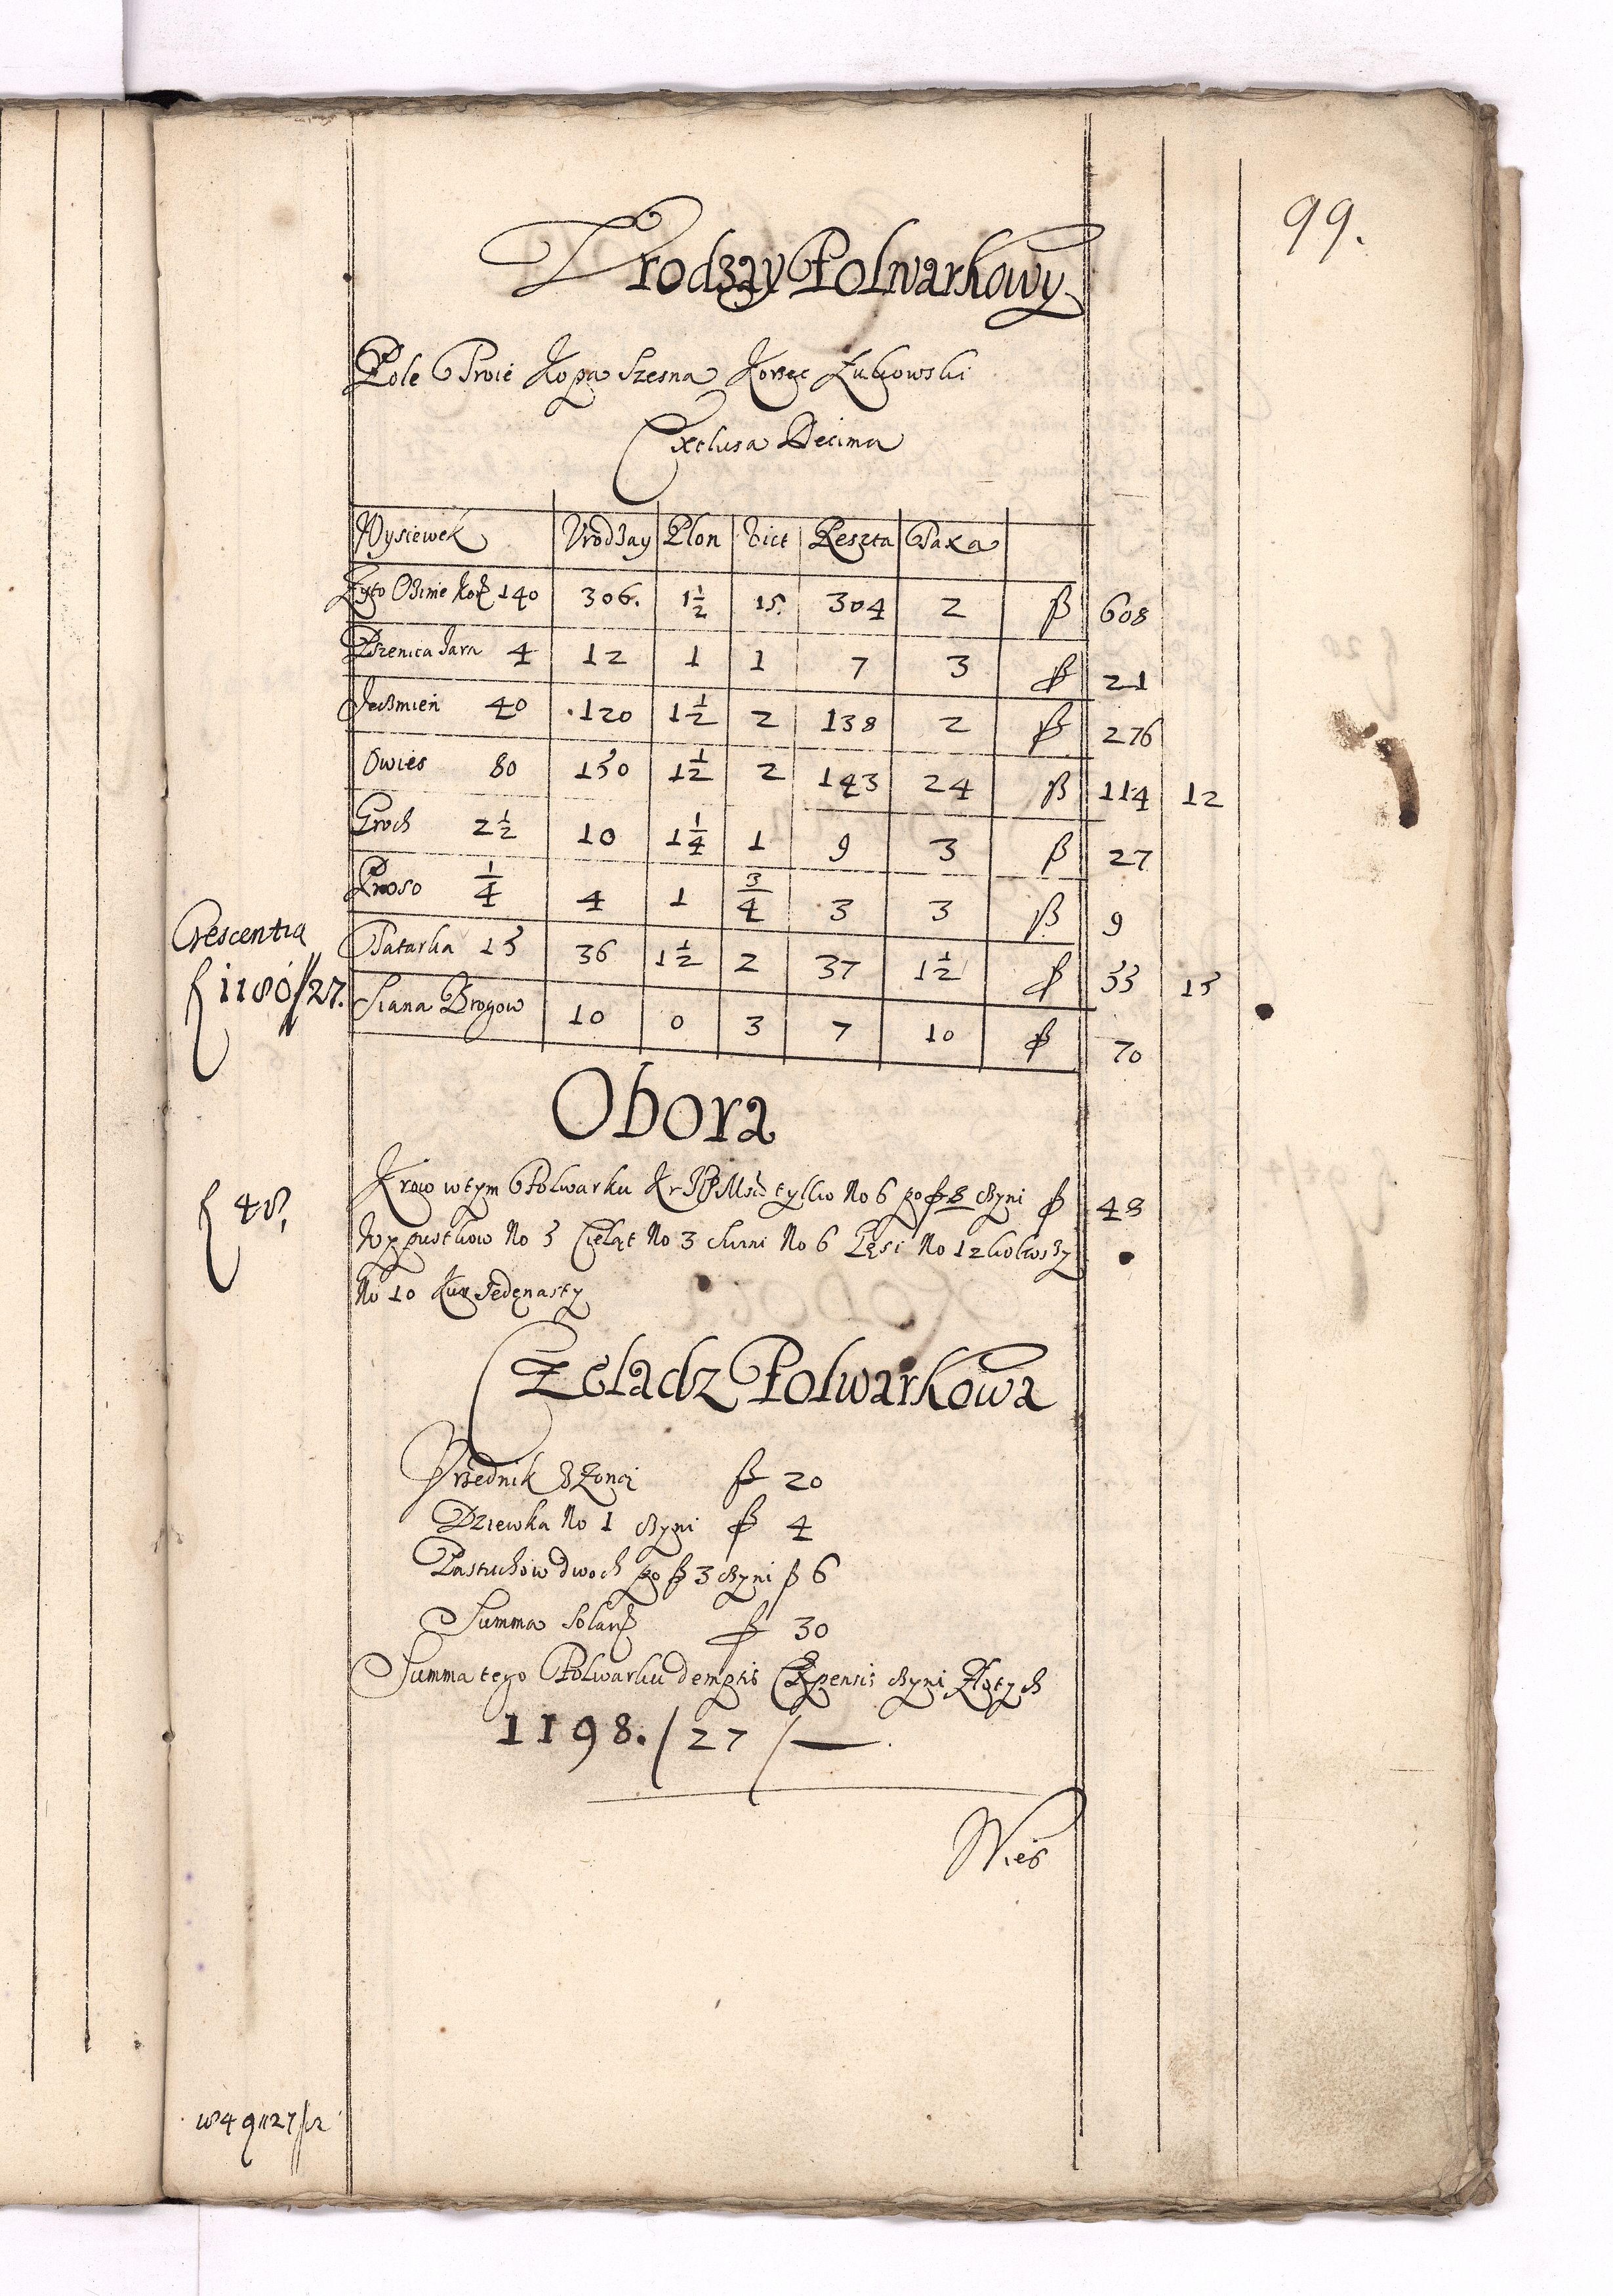 99.
Vrodzay Folwarkowy
Pole Troie Kopa Szesna Korzec Łukowski
Exclusa Decima
Wysiewek Vrodzay Plon Vict Reszta Taxa
Zyto Ozime Korz 140 306. 1½ 15. 304 2 fl 608
Pszenica Jara 4 12 1 1 7 3 fl 21
Jeczmien 40 120 1½ 2 138 2 fl 276
Owies 80 150 1½ 2 143 24 fl 114 12
Groch 2½ 10 1¼ 1 9 3 fl 27
Proso ¼ 4 1 ¾ 3 3 fl 9
Tatarka 15 36 1½ 2 37 1½ fl 55 15
Siana Brogow 10 0 3 7 10 fl 70
Crescentia
f 1180//27.
Obora
Krow w tym Folwarku tylko No 6 po fl 8 czyni fl 48
f 48.
No 5 Cieląt No 3 No 6 Gęsi No 12 kokoszy
No 10 Kur Jedenasty
Czeladz Folwarkowa
Vrzednik z Zoną fl 20
Dziewka No 1 czyni fl 4
Pastuchow dwoch po fl 3 czyni fl 6
Summa Solarÿ fl 30
Summa tego Folwarku demptis Expensis czyni Złotych
1198./27/—
Wies